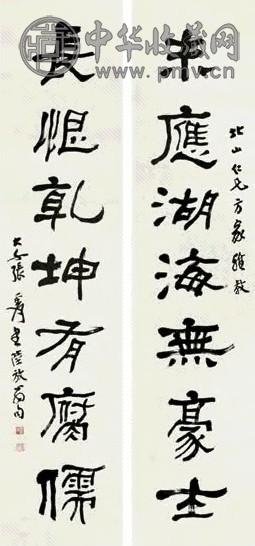 中华收藏网
www.pmv.cn
北山仁兄方家雅教
未應湖海無豪士
長恨乾坤有腐儒
大千張爰書陸放翁句